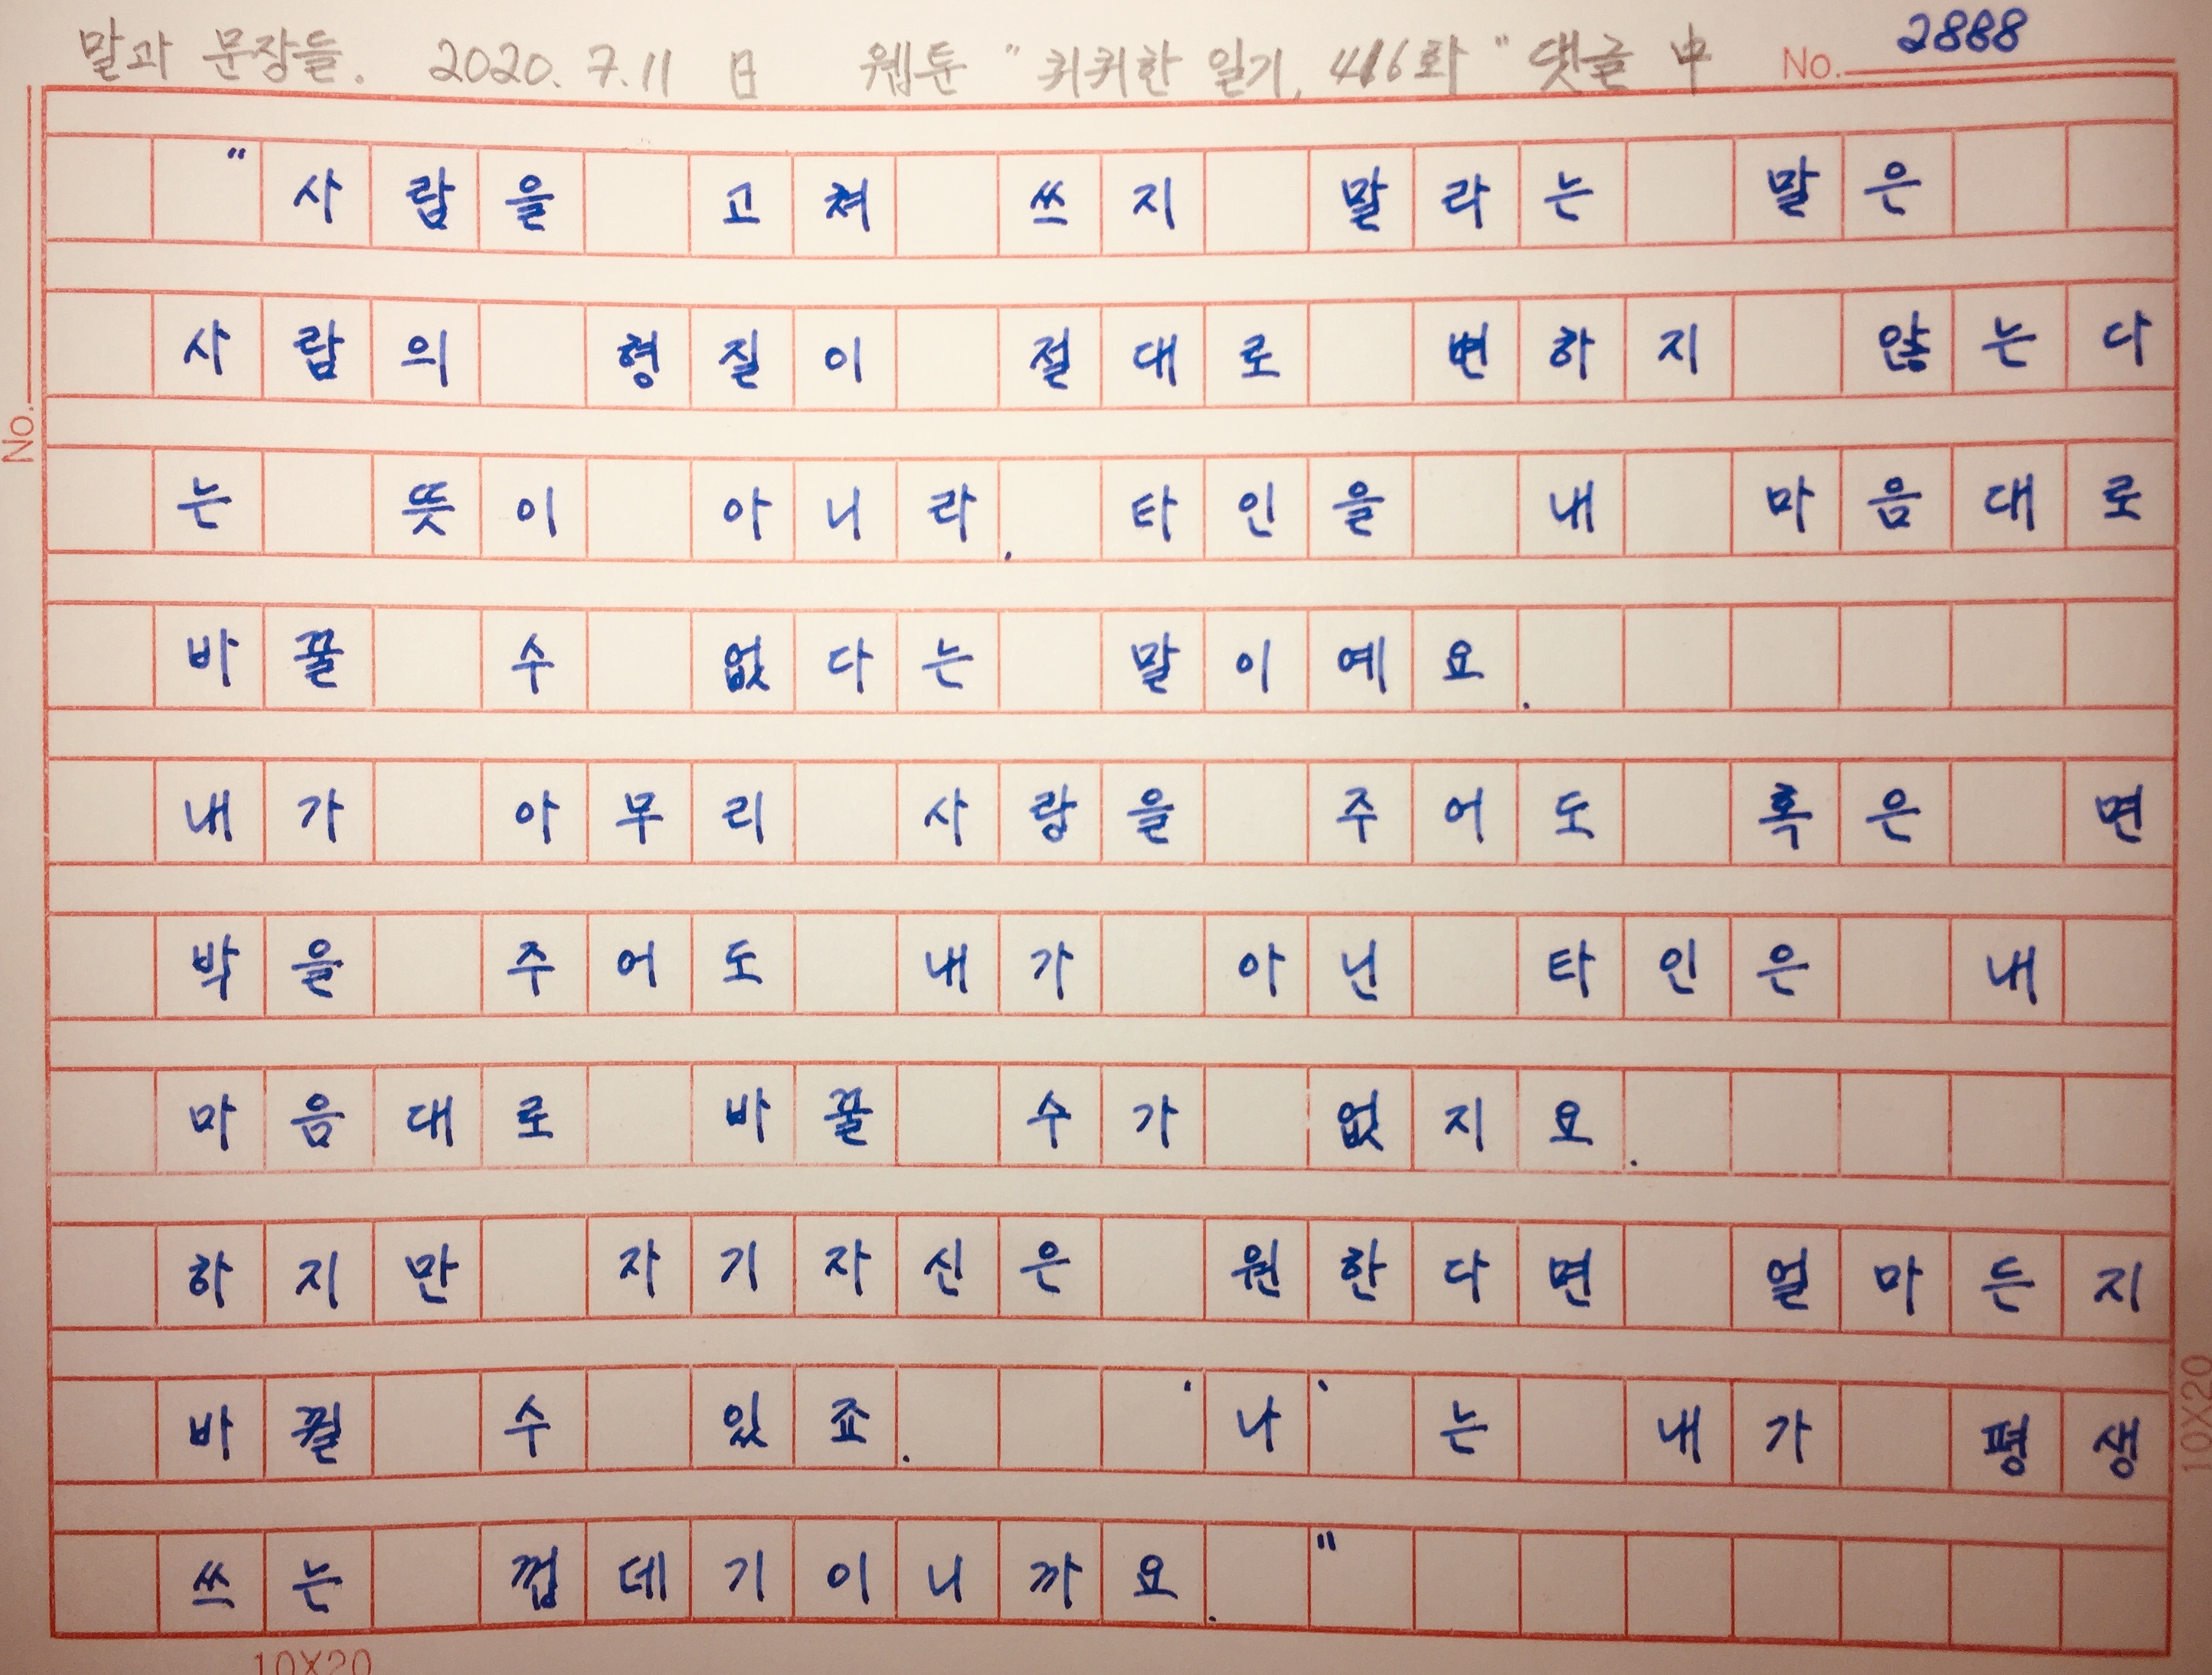 말과 문장들. 2020. 7.11 日 웹툰 "퀴퀴한 일기, 416화" 댓글 中 No. 2888
"사람을 고쳐 쓰지 말라는 말은
사람의 형질이 절대로 변하지 않는다
는 뜻이 아니라. 타인을 내 마음대로
바꿀 수 없다는 말이예요.
내가 아무리 사랑을 주어도 혹은 면
박을 주어도 내가 아닌 타인은 내
마음대로 바꿀 수가 없지요.
하지만 자기자신은 원한다면 얼마든지
바뀔 수 있죠. '나'는 내가 평생
쓰는 껍데기이니까요."
No.
10X20
10X20